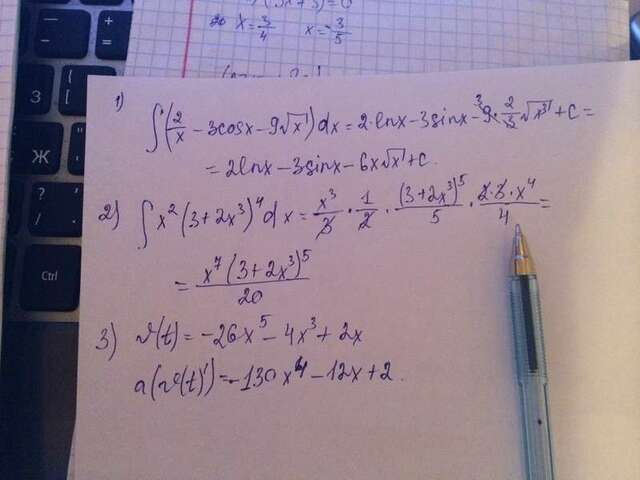 x = 3/4    x = -3/5
1) ∫(2/x - 3cosx - 9√x)dx = 2·lnx - 3sinx - 9·2/3 √x³ + c =
= 2lnx - 3sinx - 6x√x + c.
2) ∫x²(3+2x³)⁴dx = x³/3 · 1/2 · (3+2x³)⁵/5 · 2·3·x⁴/4 =
= x⁷(3+2x³)⁵/20
3) v(t) = -26x⁵ - 4x³ + 2x
a(v(t)') = -130x⁴ - 12x + 2.
З
Ж
Ctrl